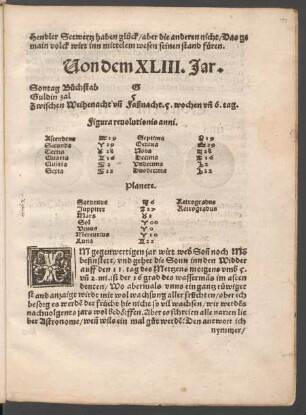 Hendler Seewern haben glück/ aber die anderen nicht/ Das ge
main volck wirt inn mittelem wesen seinen stand füren.
Von dem XLIII. Jar.
Sontag Büchstab G
Guldin zal ς
Zwischen Weihenacht uñ Faßnacht. ς. wochen uñ 6. tag.
Figura revolutionis anni.
Ascendens 29 Septima 29
Secunda 29 Octava 29
Tertia 28 Nona 28
Quarta 16 Decima 16
Quinta Undecima
Sexta 22 Duodecima 22
Planete.
Saturnus 6 Retrogradus
Juppiter 27 Retrogradus
Mars
Sol 00
Venus 0
Mercurius 10
Luna 22
IM gegenwertigen jar wirt weder Soñ noch Mõ
befinstert, und gehet die Sonn inn den Widder
auff den 11. tag des Mertzens morgens umb ς.
uñ 2. mi. ist der 16 grad des wassermans im ascen
denten/ Wo abermals unns ein gang rüwiger
stand anzaigt würde mit wol wachsung aller früchten/ aber ich
besorg es werd der früchte hie nicht so vil wachsen/ wir werdẽs
nachvolgents jars wol bedörffen. Aber es schreien alle narren lie
ber Astronome/ wenn wils ein mal güt werdẽ: Den antwort ich
nymmer/